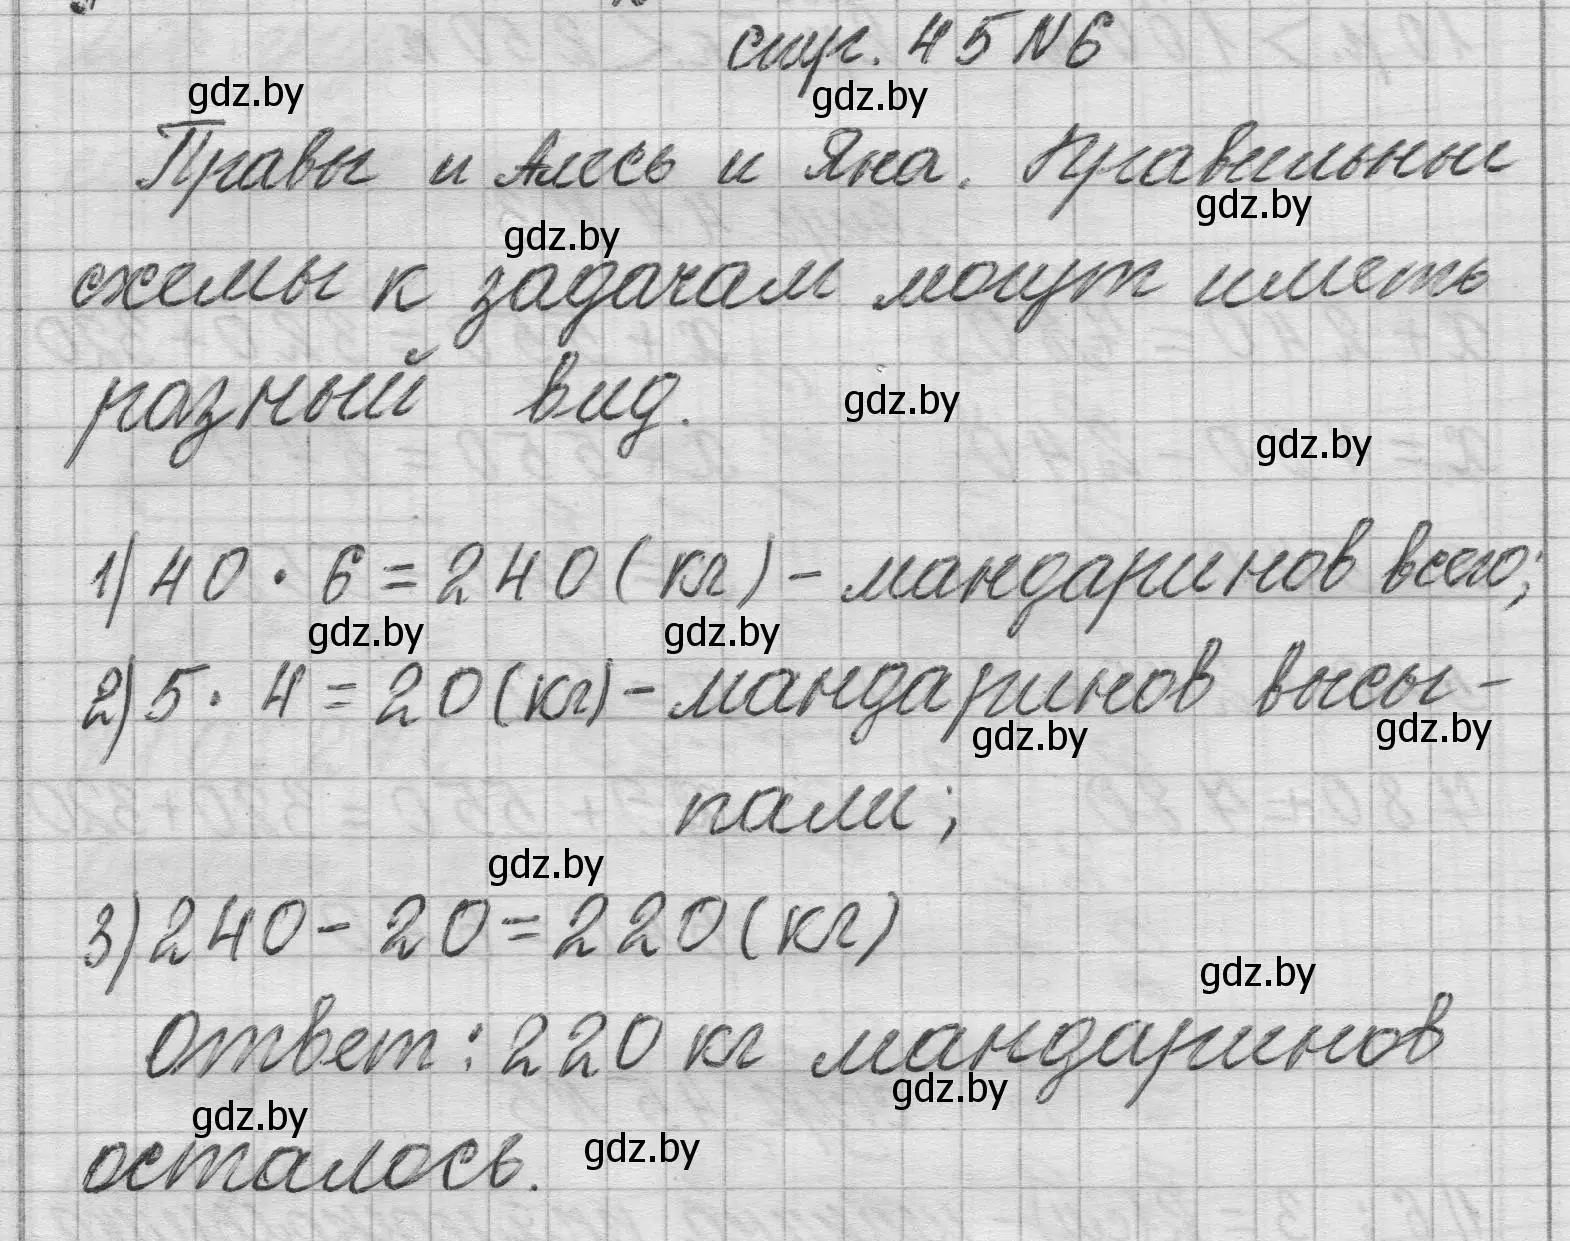 стр. 45 N 6
gdz.by gdz.by
Правы и Алесь и Яна. Правильные
gdz.by gdz.by
схемы к задачам могут иметь
разный вид. gdz.by
gdz.by
1) 40 · 6 = 240 (кг) - мандаринов всего;
gdz.by gdz.by
2) 5 · 4 = 20 (кг) - мандаринов высы-
gdz.by gdz.by
пали;
gdz.by
3) 240 - 20 = 220 (кг)
gdz.by
Ответ: 220 кг мандаринов
gdz.by
gdz.by
осталось. gdz.by